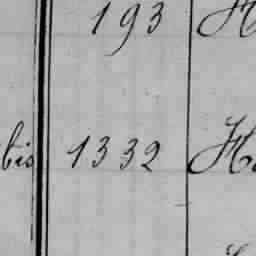 193
bis 1332